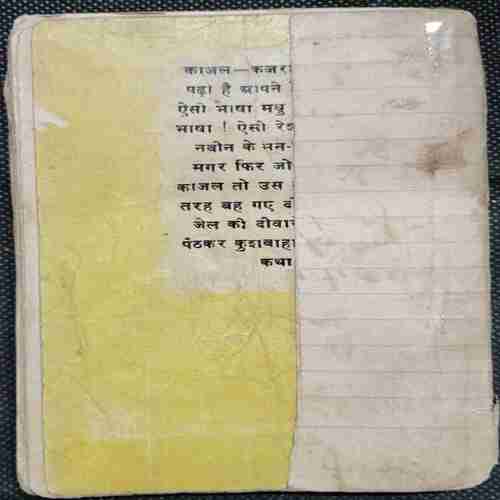 काजल—कजर
पढ़ा है आपने
ऐसी भाषा मधु
भाषा ! ऐसी रे
नवीन के मन-
मगर फिर जो
काजल तो उस
तरह बह गए
जेल की दीवा
पैठकर कुशवाहा
कथा